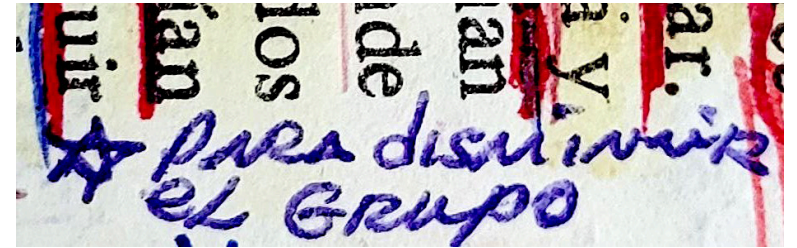 uir
ían
los
nde
nan
a y
ar.
☆ PARA disminuir
el GRUPO